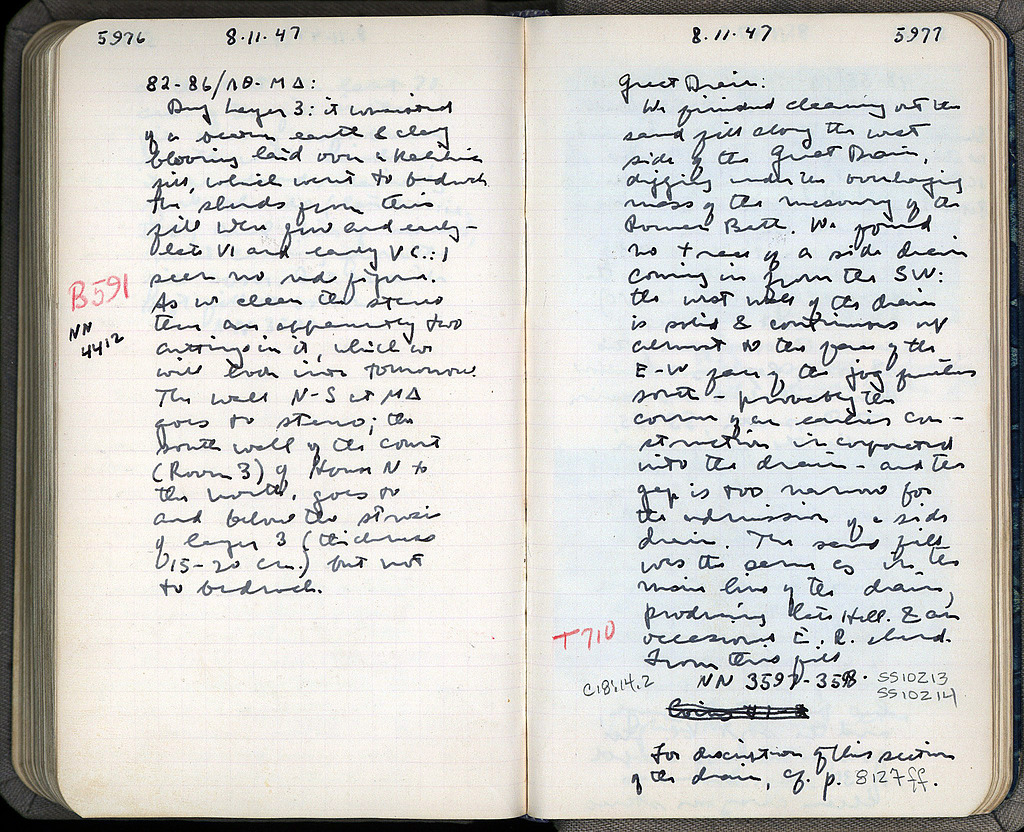 5976 8·11·47
82-86/ΛΘ-ΜΔ:
Dug Layer 3: it consisted
of a brown earth & clay
flooring laid over a
fill, which went to bedrock.
The sherds from this
fill were few and early –
late VI and early V C.: I
seen no red figure.
B591
As we clean the stereo
NN
4412
there are apparently two
cuttings in it, which we
will look into tomorrow.
The wall N-S at ΜΔ
goes to stereo; the
south wall of the court
(Room 3) of House N to
the north, goes to
and below the strosis
of layer 3 (thickness
15-20 cm.) but not
to bedrock.
8·11·47 5977
Great Drain:
We finished cleaning out the
sand fill along the west
side of the Great Drain,
digging under the overhanging
mass of the masonry of the
Roman Bath. We found
no trace of a side drain
coming in from the SW:
the west wall of the drain
is solid & continuous up
almost to the face of the
E-W face of the jog further
south – probably the
corner of an earlier con-
struction incorporated
into the drain – and the
gap is too narrow for
the admission of a side
drain. The sand fill
was the same as in the
main line of the drain,
producing late Hell. & an
T710
occasional E. R. sherd.
From this fill
C18:14.2
NN 3597-3598· SS10213
SS10214
Coins #1-2
For description of this section
of the drain, cf. p. 8127ff.